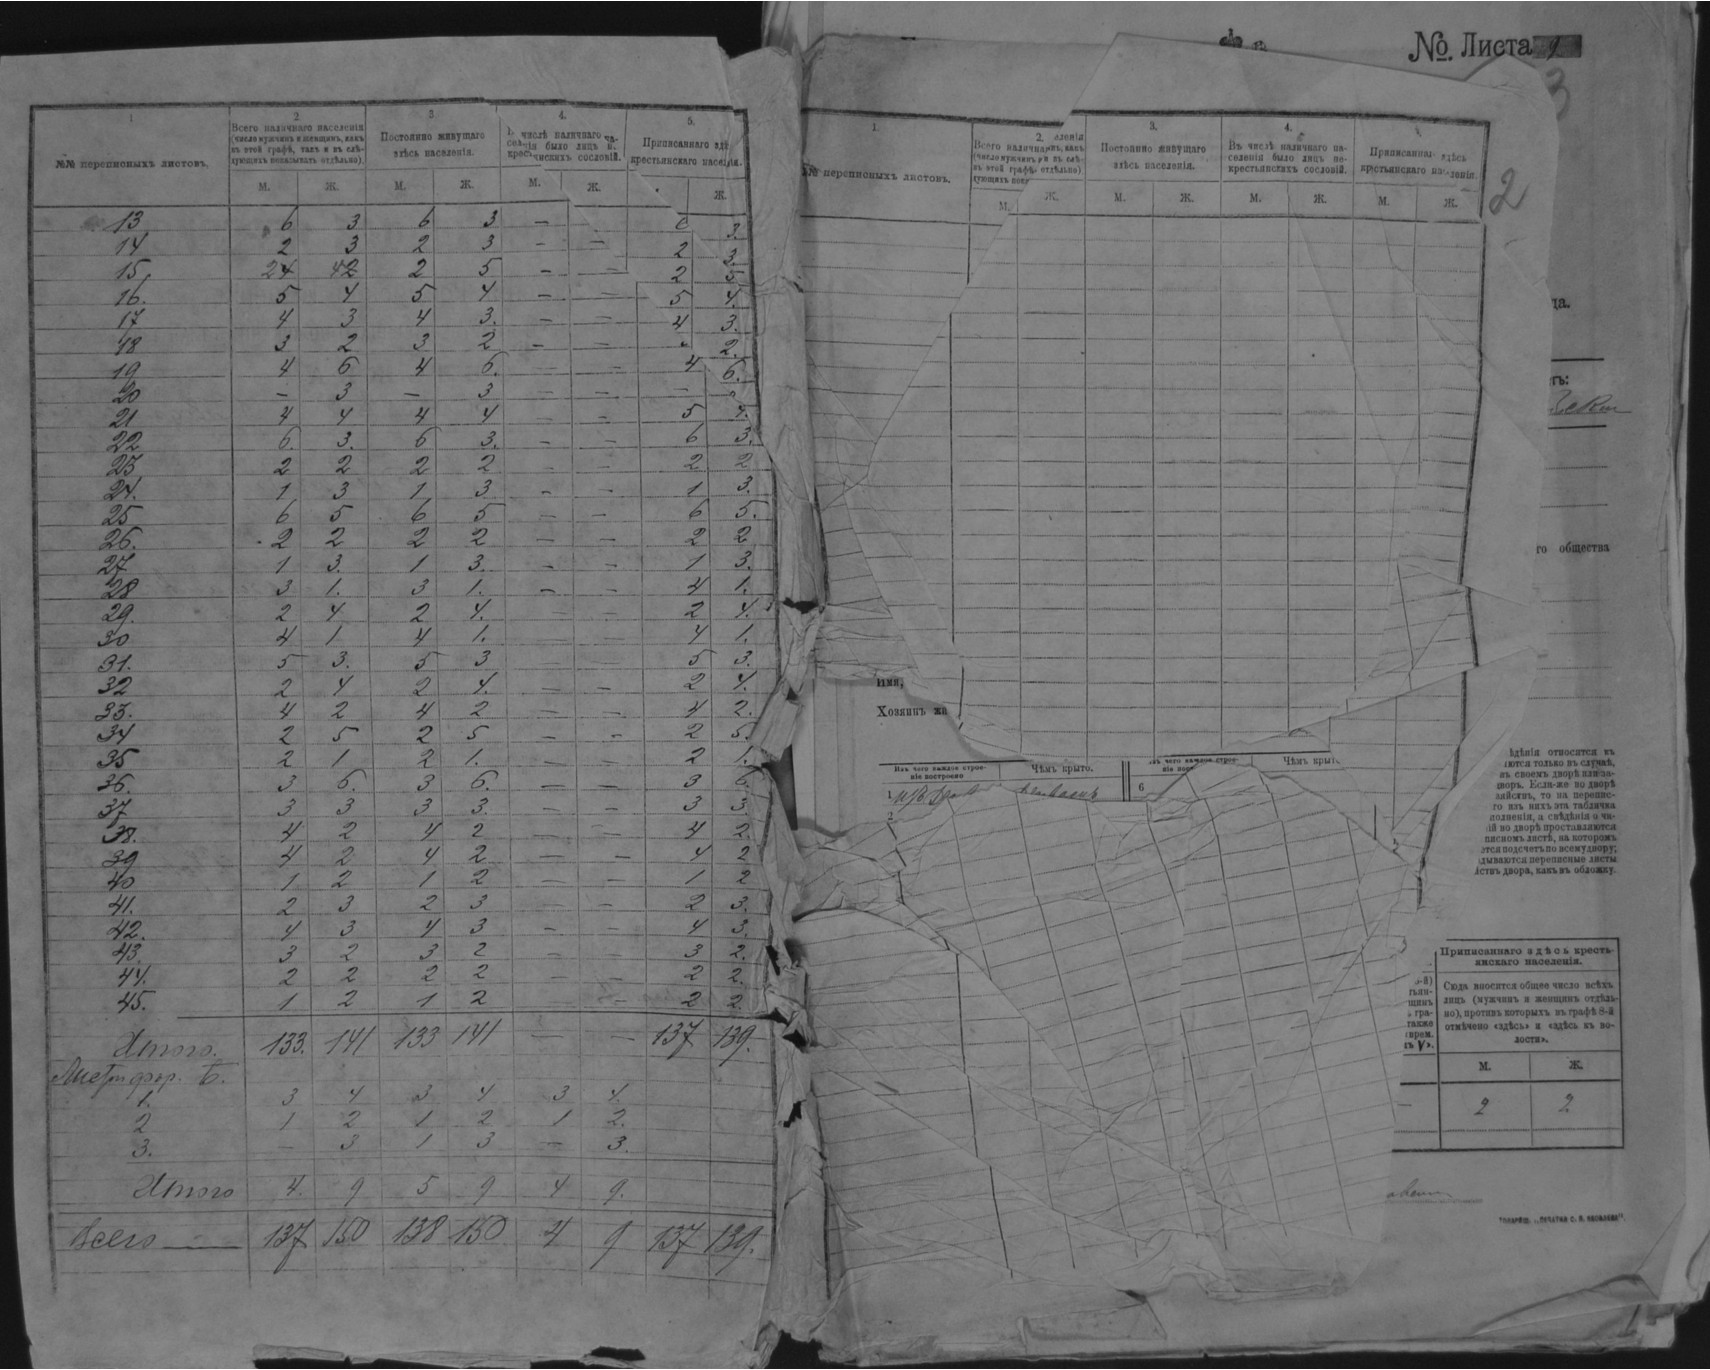 1
№№ переписныхъ листовъ.
2
Всего наличнаго населенія
(число мужчинъ и женщинъ, какъ
въ этой графѣ, такъ и въ слѣ-
дующихъ показывать отдѣльно).
М. Ж.
3
Постоянно живущаго
здѣсь населенія.
М. Ж.
4.
числѣ наличнаго на-
было лицъ
сословій.
М. Ж.
5.
Приписаннаго здѣ
крестьянскаго населенія.
Ж.
13 6 3 6 3 – 3.
14 2 3 2 3 – – 2 3
15. 24 42 2 5 – – 2
16. 5 4 5 4 – – 5 4.
17 4 3 4 3. – – 4 3.
18 3 2 3 2 – – 2.
19 4 6 4 6. – – 4 6.
20 – 3 – 3 – – –
21 4 4 4 4 – – 5
22 6. 3. 6 3. – – 6 3.
23 2 2 2 2 – – 2 2
24. 1 3 1 3 – – 1 3.
25 6 5 6 5 – – 6 5.
26. 2 2 2 2 – – 2 2
27 1 3. 1 3. – – 1 3.
28 3 1. 3 1. – – 4 1.
29. 2 4 2 4. – – 2 4.
30 4 1 4 1. – – 4 1.
31. 5 3. 5 3 – – 5 3.
32 2 4 2 4. – – 2 4.
33. 4 2 4 2 – – 4 2.
34 2 5 2 5 – – 2 5.
35 2 1 2 1. – – 2 1.
36. 3 6. 3 6. – – 3 6.
37 3 3 3 3. – – 3 3.
38. 4 2 4 2 – – 4 2.
39 4 2 4 2 – – 4 2
40 1 2 1 2 – – 1 2
41. 2 3 2 3 – – 2 3.
42. 4 3 4 3 – – 4 3.
43. 3 2 3 2 – – 3 2.
44. 2 2 2 2 – – 2 2.
45. 1 2 1 2 – – 2 2
Итого. 133. 141 133 141 – – 137 139.
Листы фор. Б.
1. 3 4 3 4 3 4.
2 1 2 1 2 1 2.
3. – 3 1 3 – 3.
Итого 4. 9 5 9 4 9.
Всего — 137 150 138 150. 4 9 137 139.
№ Листа
3
2
1.
№ переписныхъ листовъ.
2.
Всего наличн
(число мужчинъ
въ этой графѣ
дующихъ
М. Ж.
3.
Постоянно живущаго
здѣсь населенія.
М. Ж.
4.
Въ числѣ наличнаго на-
селенія было лицъ не-
крестьянскихъ сословій.
М. Ж.
Приписаннаго здѣсь
крестьянскаго населенія.
М. Ж.
го общества
Имя,
Хозяинъ
Изъ чего каждое строе-
ніе построено
Чѣмъ крыто.
1
2
6
ѣдѣнія относятся къ
ются только въ случаѣ,
въ своемъ дворѣ или за-
воръ. Если-же во дворѣ
зяйств, то на перепис-
го изъ нихъ эта табличка
полненія, а свѣдѣнія о чи-
ій во дворѣ проставляются
писномъ листѣ, на которомъ
ется подсчетъ по всему двору;
дываются переписные листы
йствъ двора, какъ въ обложку.
Приписаннаго здѣсь кресть-
янскаго населенія.
Сюда вносится общее число всѣхъ
лицъ (мужчинъ и женщинъ отдѣль-
но), противъ которыхъ въ графѣ 8-й
отмѣчено «здѣсь» и «здѣсь въ во-
лости».
М. Ж.
– 2 2